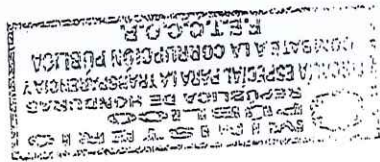 MINISTERIO
PUBLICO
REPÚBLICA DE HONDURAS
FISCALÍA ESPECIAL PARA LA TRANSPARENCIA Y
COMBATE A LA CORRUPCIÓN PÚBLICA
F.E.T.C.C.O.P.